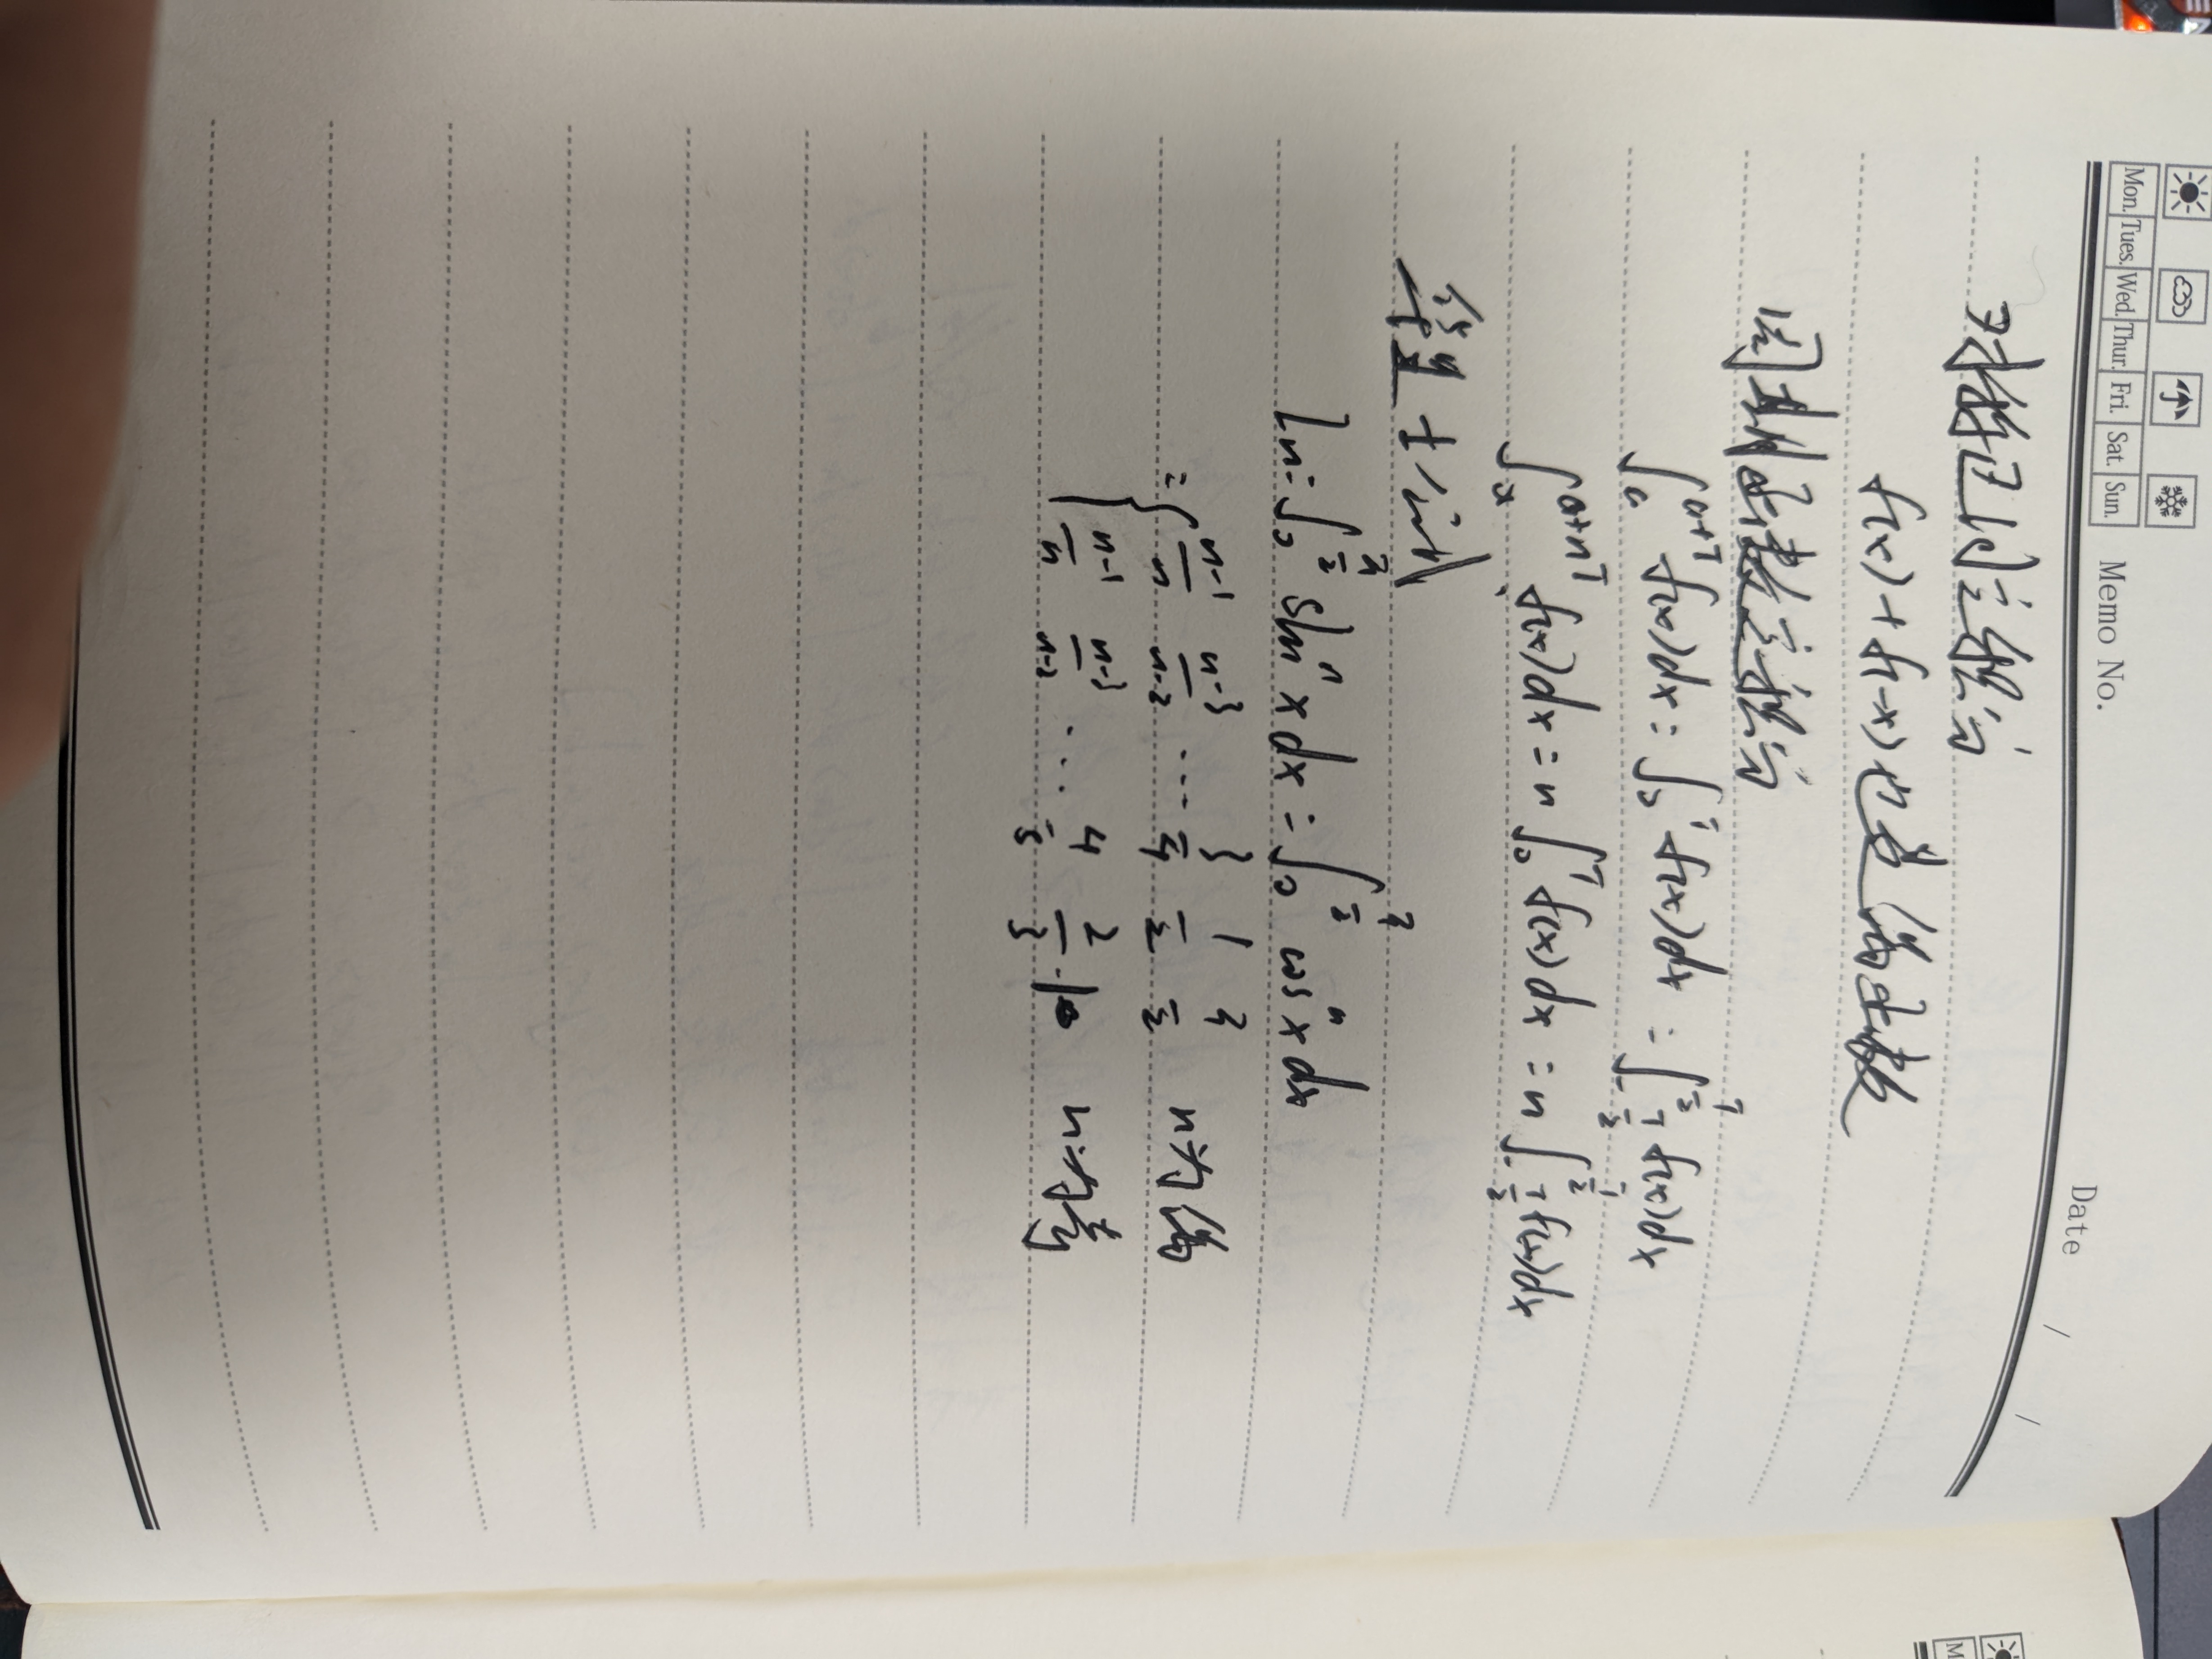 Mon. Tues. Wed. Thur. Fri. Sat. Sun. Memo No. Date / /
对称区间定积分
f(x)+f(-x) 也是偶函数
周期函数定积分
∫_a^{a+T} f(x)dx = ∫_0^T f(x)dx = ∫_{-T/2}^{T/2} f(x)dx
∫_x^{a+nT} f(x)dx = n∫_0^T f(x)dx = n∫_{-T/2}^{T/2} f(x)dx
公式
In = ∫_0^{π/2} sin^n x dx = ∫_0^{π/2} cos^n x dx
= { (n-1)/n (n-3)/(n-2) ... 3/4 1/2 π/2 n为偶
(n-1)/n (n-3)/(n-2) ... 4/5 2/3 · 1 n为奇
M